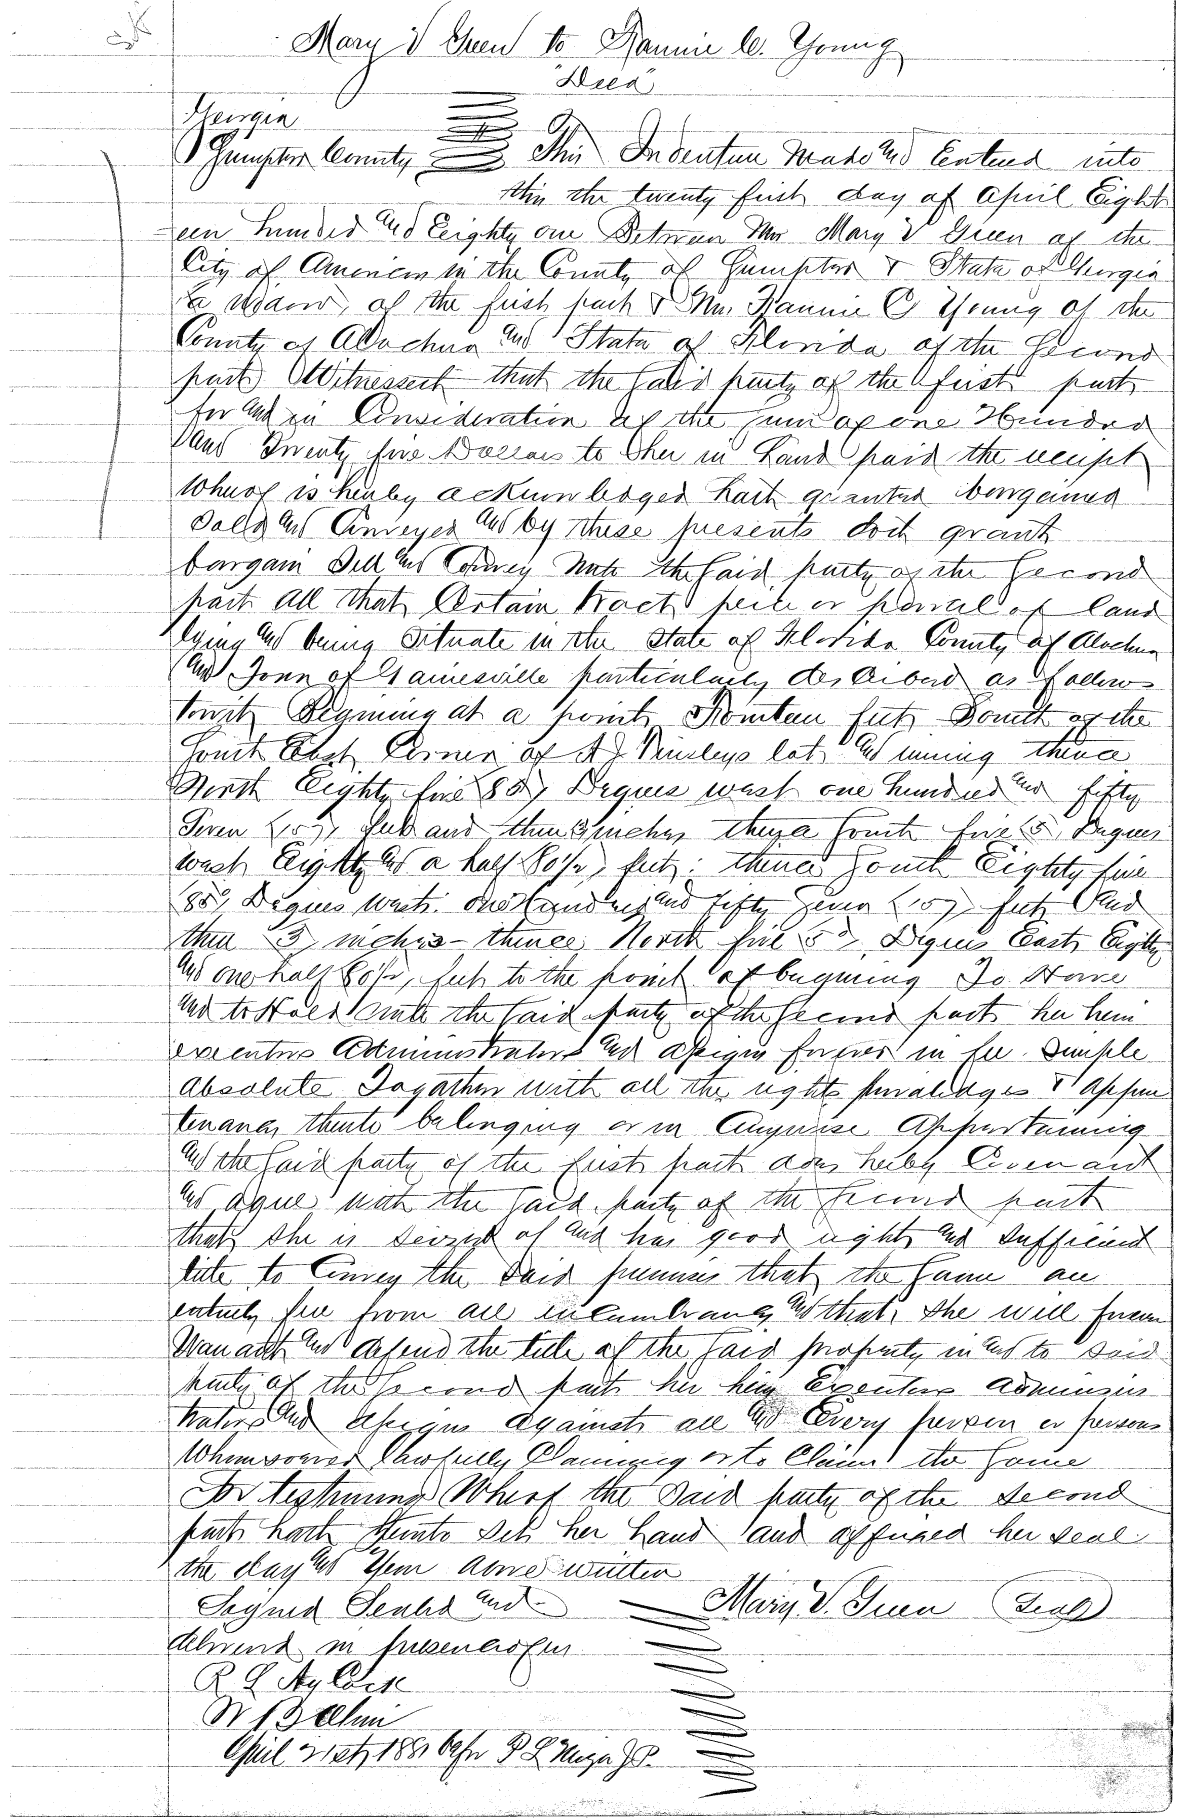 Mary V Green to Fannie C. Young
"Deed"
Georgia
Sumpter County This Indenture made and Entered into
this the twenty first day of April Eight
een hundred and Eighty one Between Mrs Mary V Green of the
City of Americus in the County of Sumpter & State of Georgia
a widow, of the first part & Mrs Fannie C Young of the
County of Alachua and State of Florida of the Second
part Witnesseth that the Said party of the first part
for and in Consideration of the sum of one Hundred
and Twenty five Dollars to her in hand paid the reciept
whereof is hereby acknowledged hath granted bargained
sold and Conveyed and by these presents doth grant
bargain Sell and Convey unto the Said party of the Second
part all that Certain tract piece or parcel of land
lying and being Situate in the State of Florida County of Alachua
and Town of Gainesville particularly described as follows
towit Begining at a point Fourteen feet South of the
South East Corner of A J Tinsleys lot and runing thence
North Eighty five 85°, Degrees west one hundred and fifty
Seven (157), feet and three 3 inches thence South five (5, Degrees
west Eighty and a half 80½, feet; thence South Eighty five
85°, Degrees West. one hundred and fifty Seven (157, feet and
three 3, inches - thence North five 5°, Degrees East Eighty
and one half 80½, feet to the point of begining To Have
and to Hold unto the Said party of the Second part her heirs
executors Administrators and assigns forever in fee simple
absolute Togather with all the rights priviledges & appur
tenances thereto belonging or in Anywise Appertaining
and the Said party of the first part does hereby Covenant
and agree with the Said party of the Second part
that she is seized of and has good right and sufficient
title to Convey the said premises that the Same are
entirely free from all incumbrances and that she will forever
Warrant and defend the title of the Said property in and to said
party of the Second part her heirs Executors adminis
trators and assigns against all and Every person or persons
Whomsoever lawfully Claiming or to Claim the Same
In testimony Whereof the Said party of the Second
part hath hereunto set her hand and affixed her seal
the day and Year above written
Signed Sealed and Mary V. Green (Seal)
delivered in presence of us
R L Aycock
April 21st, 1881 before J.P.